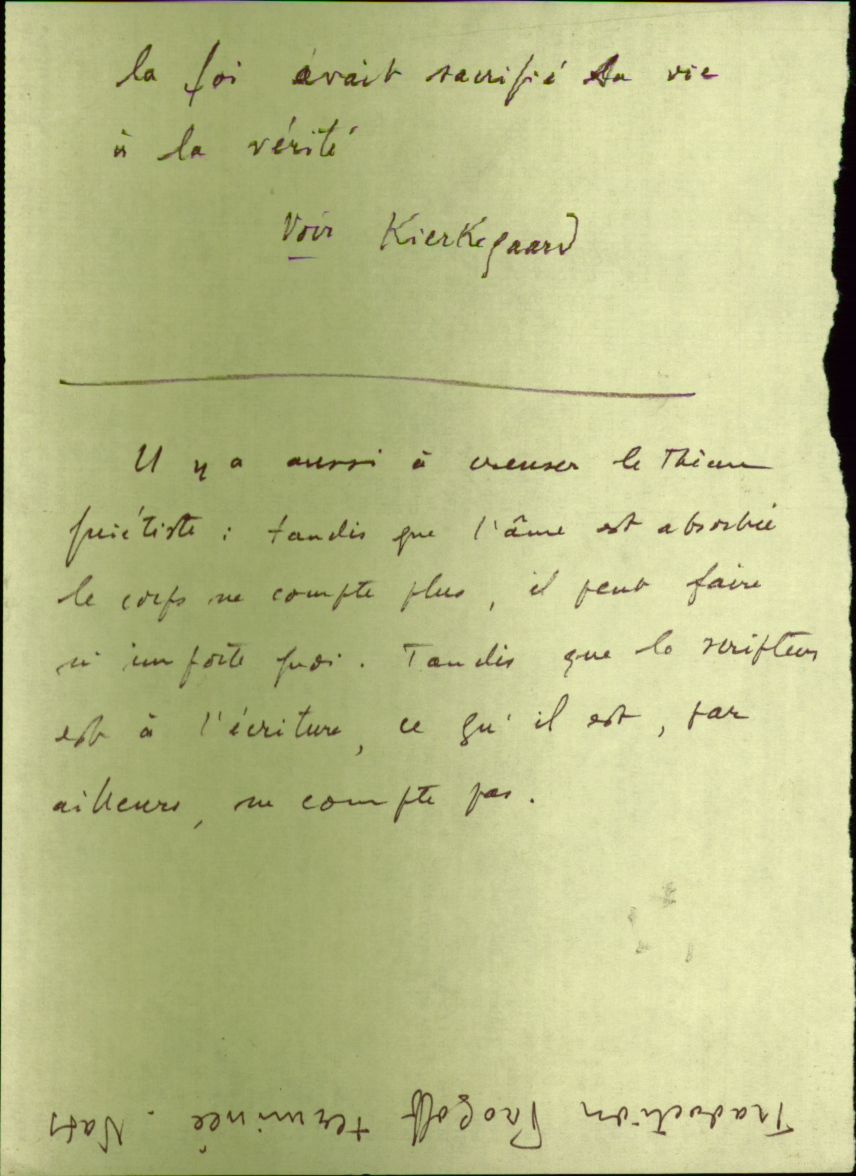 la foi avait sacrifié sa vie
à la vérité
Voir Kierkegaard
Il y a aussi à creuser le Thème
quiétiste : tandis que l'âme est absorbée
le corps ne compte plus, il peut faire
n'importe quoi. Tandis que le scripteur
est à l'écriture, ce qu'il est, par
ailleurs, ne compte pas.
Traduction Progoff terminée.